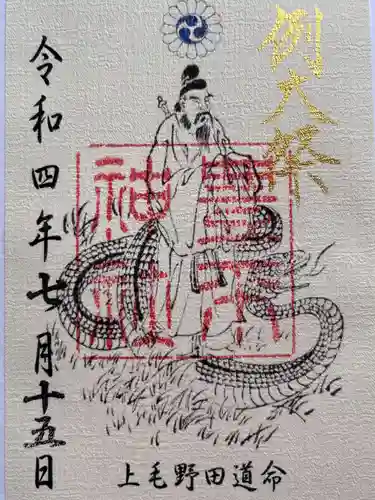 例大祭
令和四年七月十五日
上毛野田道命